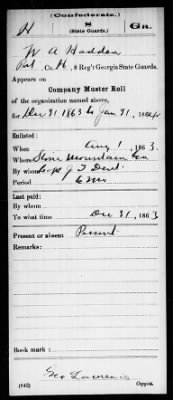 (Confederate.)
H 8 Ga.
(State Guards.)
W A Hadden
Pvt., Co. H, 8 Reg't Georgia State Guards.
Appears on
Company Muster Roll
of the organization named above,
for Dec 31 1863 to Jan 31, 1864
Enlisted:
When Aug 1, 1863.
Where Stone Mountain Ga
By whom Capt J T Dent
Period 6 Mos
Last paid:
By whom
To what time Dec 31, 1863
Present or absent Present
Remarks:
Book mark:
Geo Lawrence
(642) Copyist.